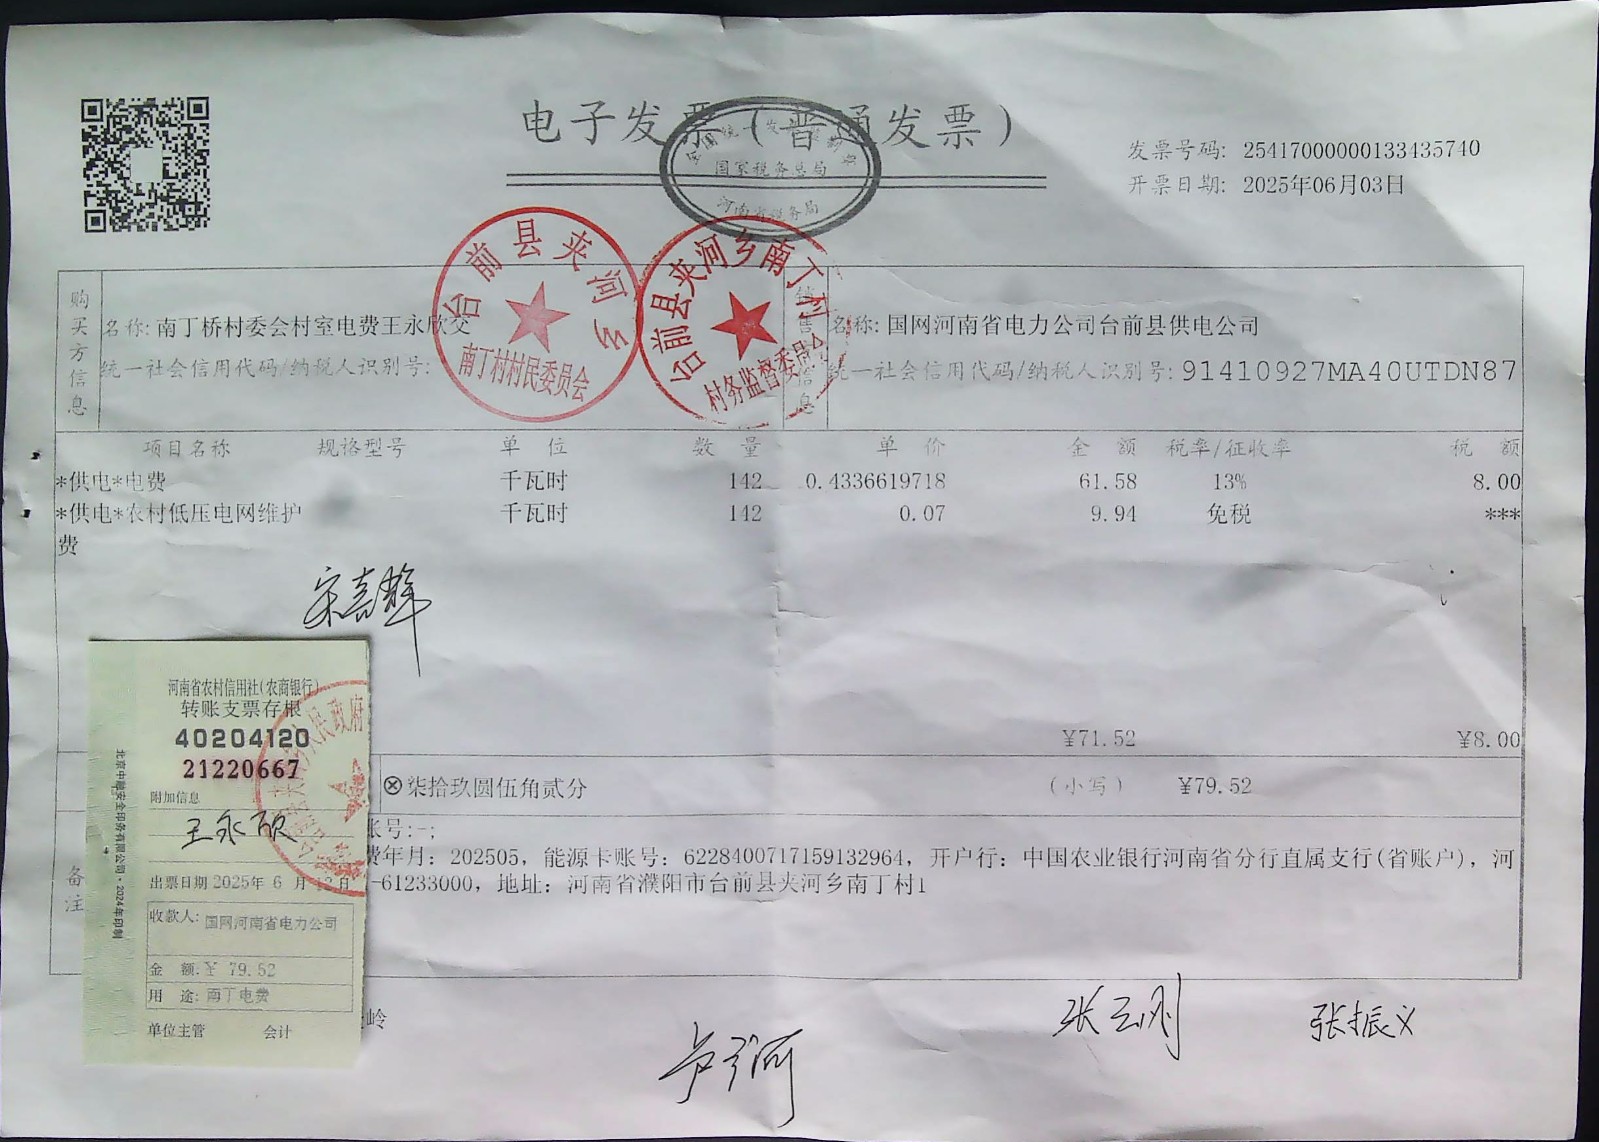 电子发票（普通发票）
全国统一发票监制章
国家税务总局
河南省税务局
发票号码: 25417000000133435740
开票日期: 2025年06月03日
台前县夹河乡
南丁村村民委员会
台前县夹河乡南丁村
村务监督委员会
购买方信息
名称: 南丁桥村委会村室电费王永欣交
统一社会信用代码/纳税人识别号:
销售方信息
名称: 国网河南省电力公司台前县供电公司
统一社会信用代码/纳税人识别号: 91410927MA40UTDN87
项目名称 规格型号 单位 数量 单价 金额 税率/征收率 税额
*供电*电费 千瓦时 142 0.4336619718 61.58 13% 8.00
*供电*农村低压电网维护 千瓦时 142 0.07 9.94 免税 ***
费
¥71.52 ¥8.00
ⓧ柒拾玖圆伍角贰分 (小写) ¥79.52
备注
账号:-;
费年月: 202505, 能源卡账号: 6228400717159132964, 开户行: 中国农业银行河南省分行直属支行(省账户), 河
-61233000, 地址: 河南省濮阳市台前县夹河乡南丁村1
河南省农村信用社(农商银行)
转账支票存根
40204120
21220667
附加信息
王永欣
出票日期 2025年 6 月 12日
收款人: 国网河南省电力公司
金 额: ¥ 79.52
用 途: 南丁电费
单位主管 会计
北京中融安全印务有限公司·2024年印制
人民政府
岭
张云刚
张振义